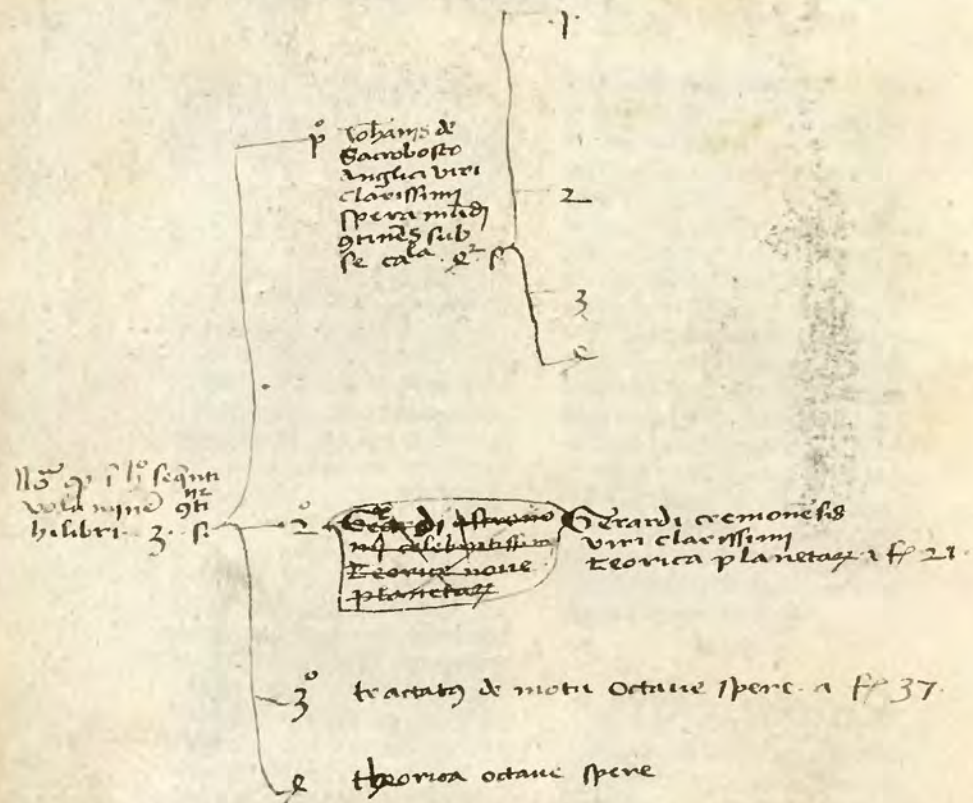 1
pº Iohanis de
Sacrobosco
Anglici viri
clarissimi
spera mūdi
9tinēs sub
se cala. 4or s.
2
3
4
Nōa qp ī lº seqnti
volumine 9ti
hi libri. 3. s.
2º
astrono
celebratissimi
Teorice noue
planetaꝝ
Gerardi cremonēsis
viri clarissimi
teorica planetaꝝ a fº 21.
3º tractatꝰ de motu Octaue spere. a fº 37.
4 theorica octaue spere